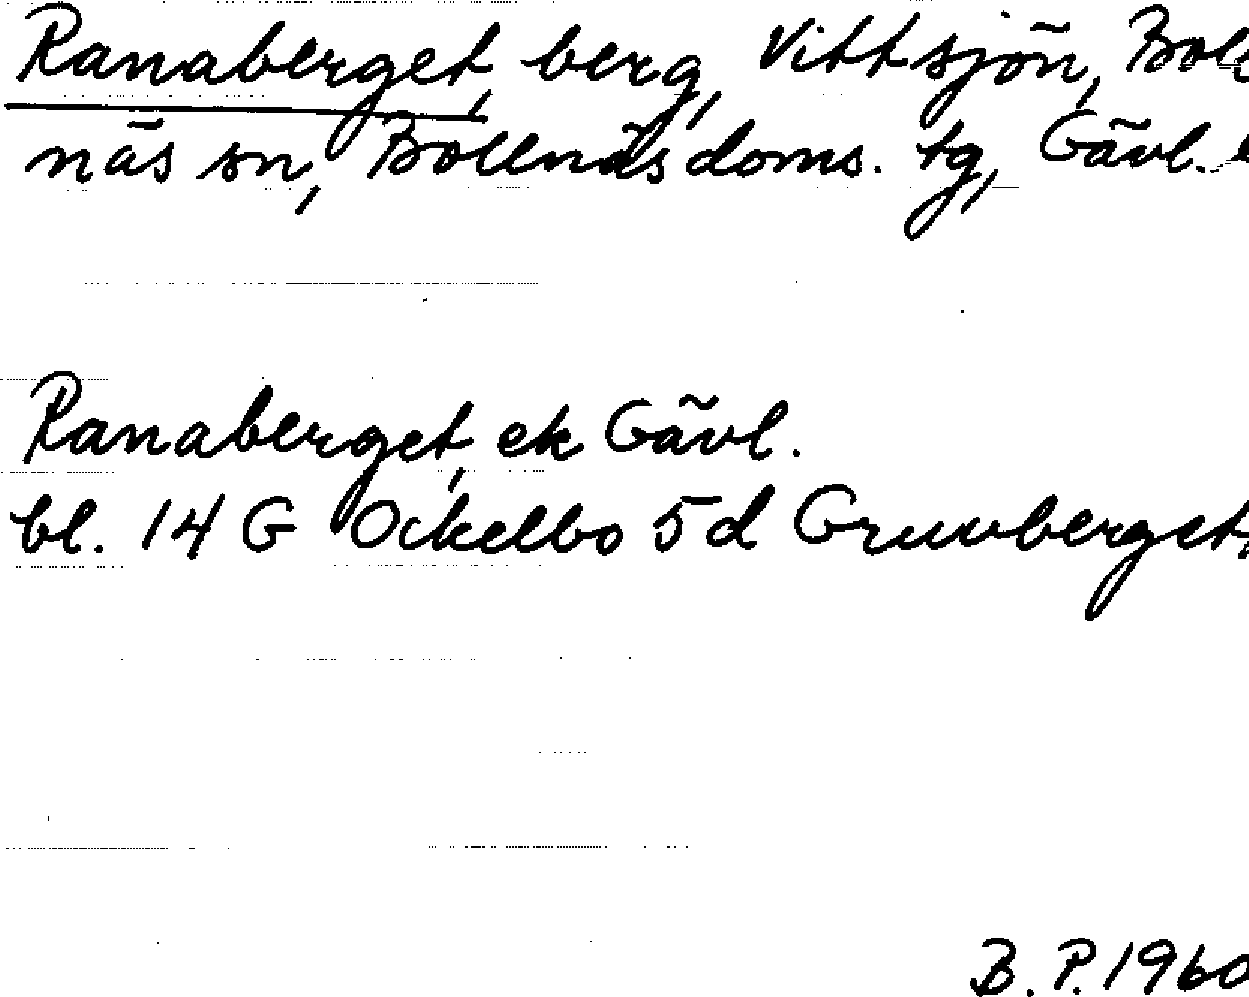 Ranaberget, berg, Vittsjön, Boll
näs sn, Bollnäs doms. tg, Gävl.
Ranaberget, ek Gävl.
bl. 14 G Ockelbo 5 d Gruvberget,
B. P. 1960